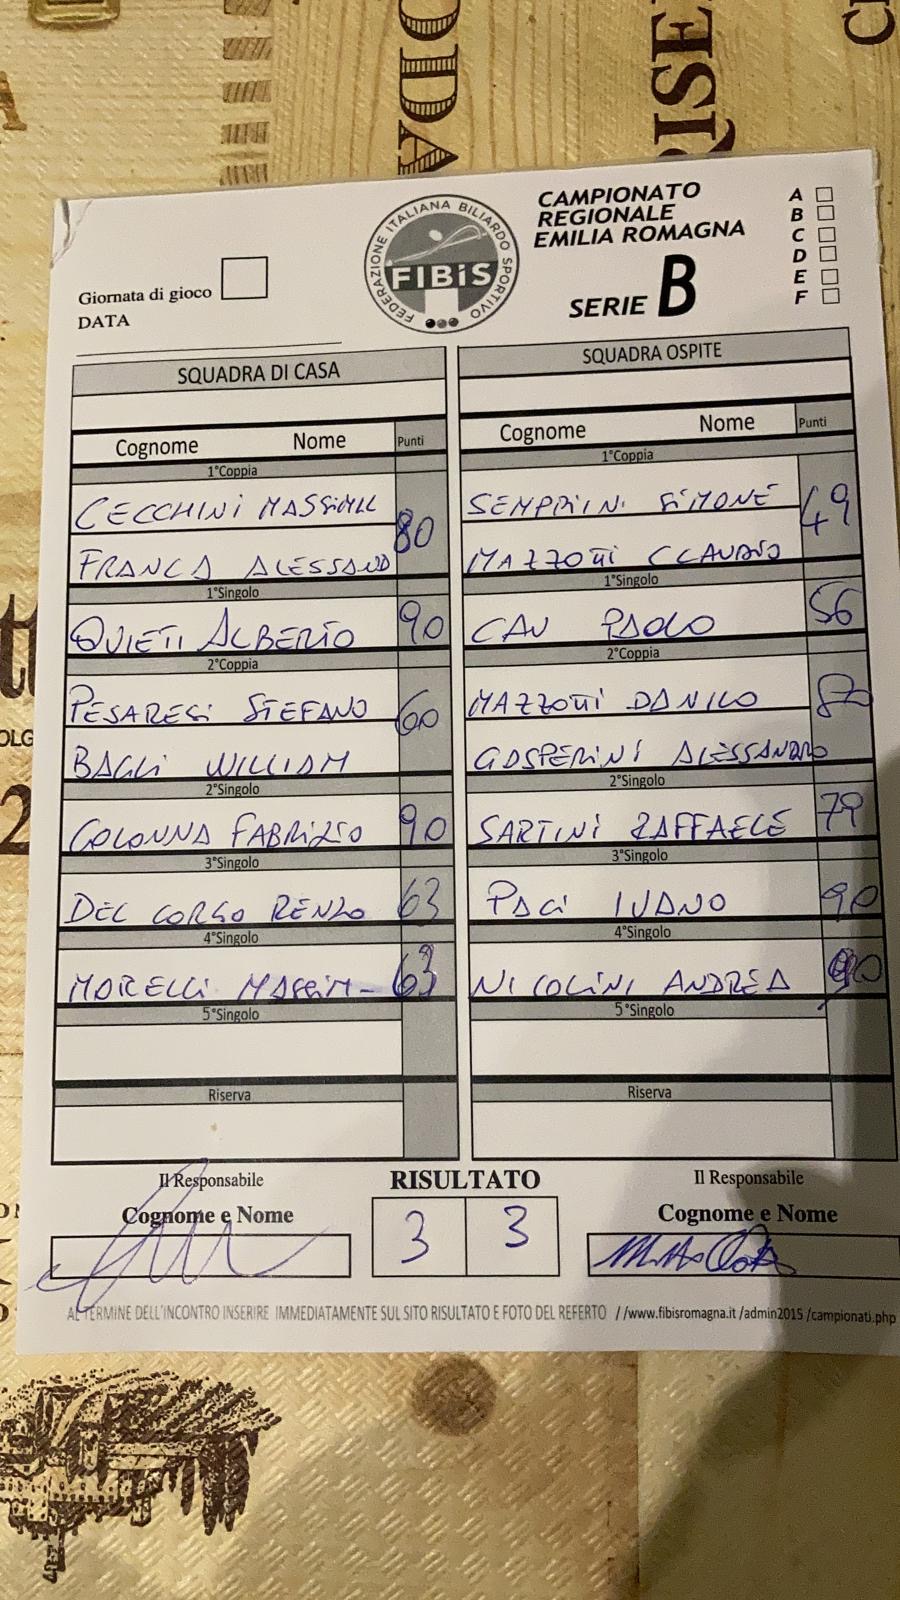 CAMPIONATO
REGIONALE
EMILIA ROMAGNA
SERIE B
A
B
C
D
E
F
FEDERAZIONE ITALIANA BILIARDO SPORTIVO
FIBiS
Giornata di gioco
DATA
SQUADRA DI CASA
Cognome Nome Punti
1°Coppia
CECCHINI MASSIMIL
80
FRANCA ALESSAND
1°Singolo
QUIETI ALBERTO 90
2°Coppia
PESARESI STEFANO
60
BAGLI WILLIAM
2°Singolo
COLONNA FABRIZIO 90
3°Singolo
DEL CORSO RENZO 63
4°Singolo
MORELLI MASSIM 63
5°Singolo
Riserva
SQUADRA OSPITE
Cognome Nome Punti
1°Coppia
SEMPRINI SIMONE
49
MAZZOTTI CLAUDIO
1°Singolo
CAV PAOLO 56
2°Coppia
MAZZOTTI DANILO
80
GASPERINI ALESSANDRO
2°Singolo
SARTINI RAFFAELE 79
3°Singolo
PACI IVANO 90
4°Singolo
NICOLINI ANDREA 90
5°Singolo
Riserva
Il Responsabile
Cognome e Nome
RISULTATO
3 3
Il Responsabile
Cognome e Nome
AL TERMINE DELL'INCONTRO INSERIRE IMMEDIATAMENTE SUL SITO RISULTATO E FOTO DEL REFERTO //www.fibisromagna.it /admin2015 /campionati.php